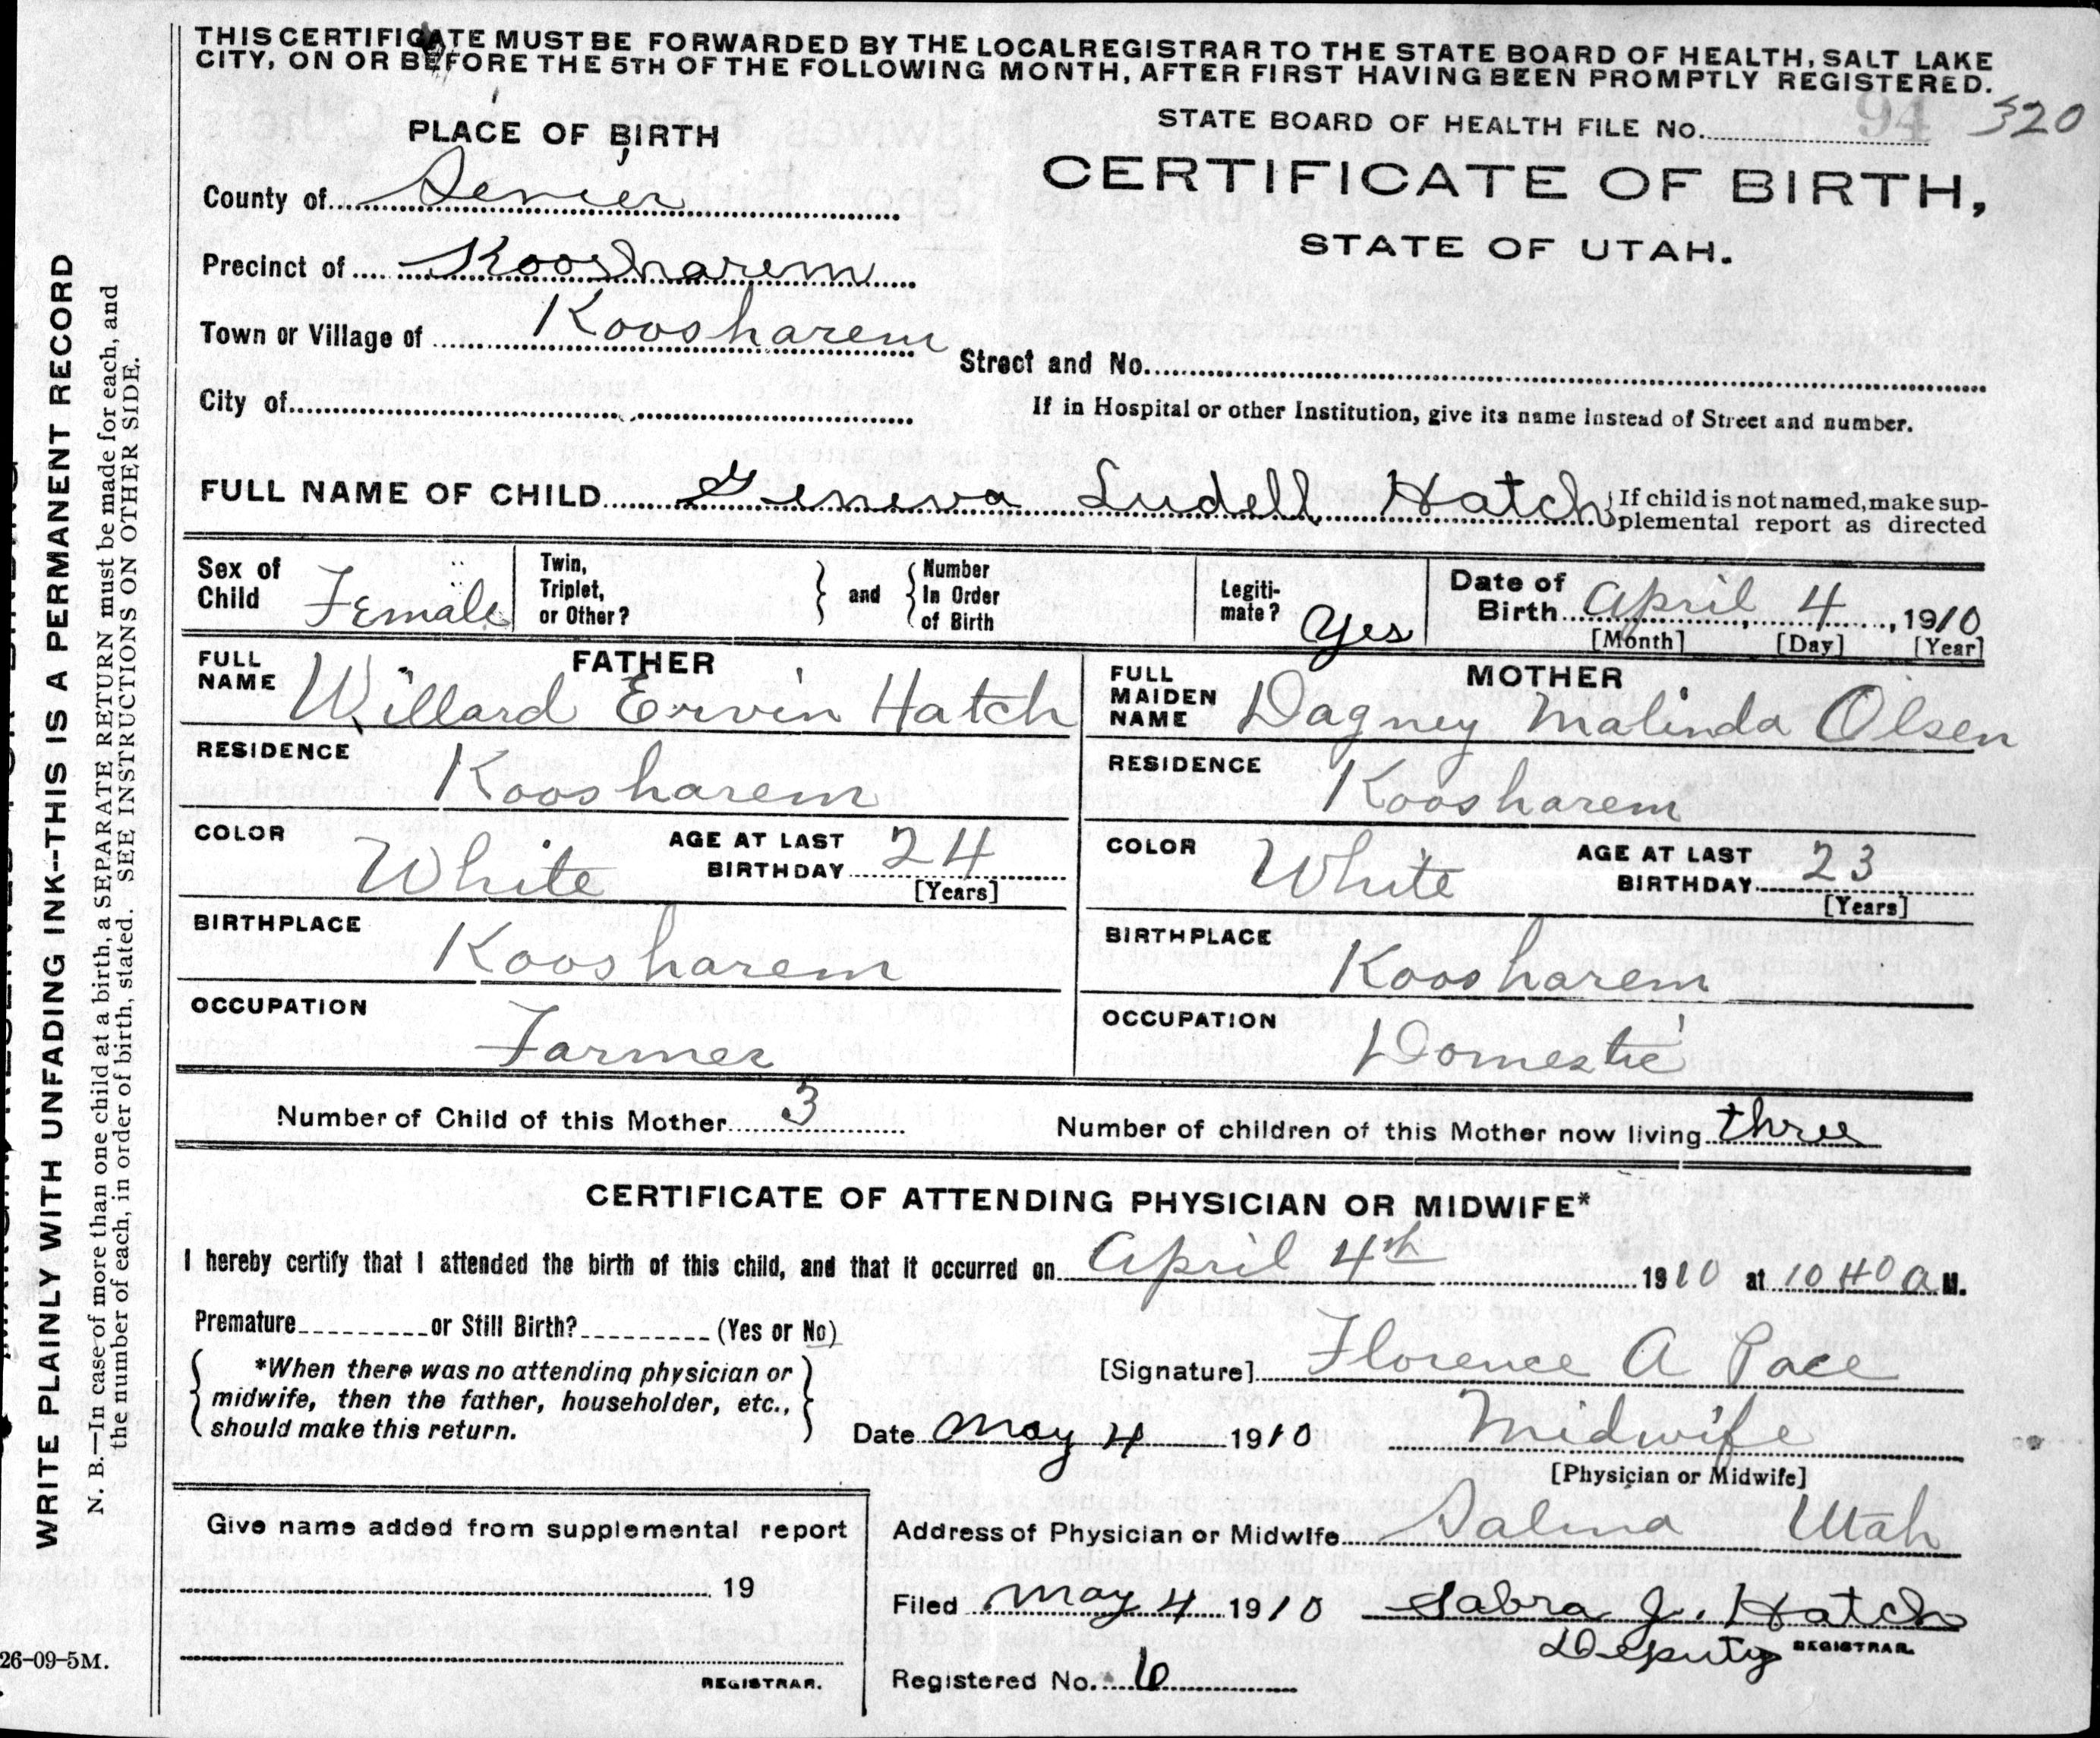 THIS CERTIFICATE MUST BE FORWARDED BY THE LOCAL REGISTRAR TO THE STATE BOARD OF HEALTH, SALT LAKE
CITY, ON OR BEFORE THE 5TH OF THE FOLLOWING MONTH, AFTER FIRST HAVING BEEN PROMPTLY REGISTERED.
STATE BOARD OF HEALTH FILE No. 94 320
PLACE OF BIRTH
CERTIFICATE OF BIRTH,
STATE OF UTAH.
County of Sevier
Precinct of Koosharem
Town or Village of Koosharem
Street and No.
City of
If in Hospital or other Institution, give its name instead of Street and number.
FULL NAME OF CHILD Geneva Ludell Hatch } If child is not named, make sup-
plemental report as directed
Sex of Child Female
Twin, Triplet, or Other? } and { Number In Order of Birth
Legiti-mate? Yes
Date of Birth April 4, 1910
[Month] [Day] [Year]
FATHER
FULL NAME Willard Ervin Hatch
RESIDENCE Koosharem
COLOR White AGE AT LAST BIRTHDAY 24
[Years]
BIRTHPLACE Koosharem
OCCUPATION Farmer
MOTHER
FULL MAIDEN NAME Dagney Malinda Olsen
RESIDENCE Koosharem
COLOR White AGE AT LAST BIRTHDAY 23
[Years]
BIRTHPLACE Koosharem
OCCUPATION Domestic
Number of Child of this Mother 3 Number of children of this Mother now living three
CERTIFICATE OF ATTENDING PHYSICIAN OR MIDWIFE*
I hereby certify that I attended the birth of this child, and that it occurred on April 4th 1910 at 10 40 A M.
Premature or Still Birth? (Yes or No)
*When there was no attending physician or
midwife, then the father, householder, etc.,
should make this return.
[Signature] Florence A Pace
Date May 4 1910 Midwife
[Physician or Midwife]
Give name added from supplemental report
19
REGISTRAR.
Address of Physician or Midwife Salina Utah
Filed May 4 1910 Sabra J. Hatch
Deputy REGISTRAR.
Registered No. 6
WRITE PLAINLY WITH UNFADING INK--THIS IS A PERMANENT RECORD
N. B.—In case of more than one child at a birth, a SEPARATE RETURN must be made for each, and
the number of each, in order of birth, stated. SEE INSTRUCTIONS ON OTHER SIDE.
26-09-5M.